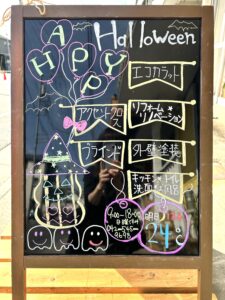 HAPPY
Halloween
エコカラット
アクセントクロス
リフォーム・
リノベーション
ブラインド
外壁塗装
キッチン・トイレ
9:00~18:00
明日
24℃